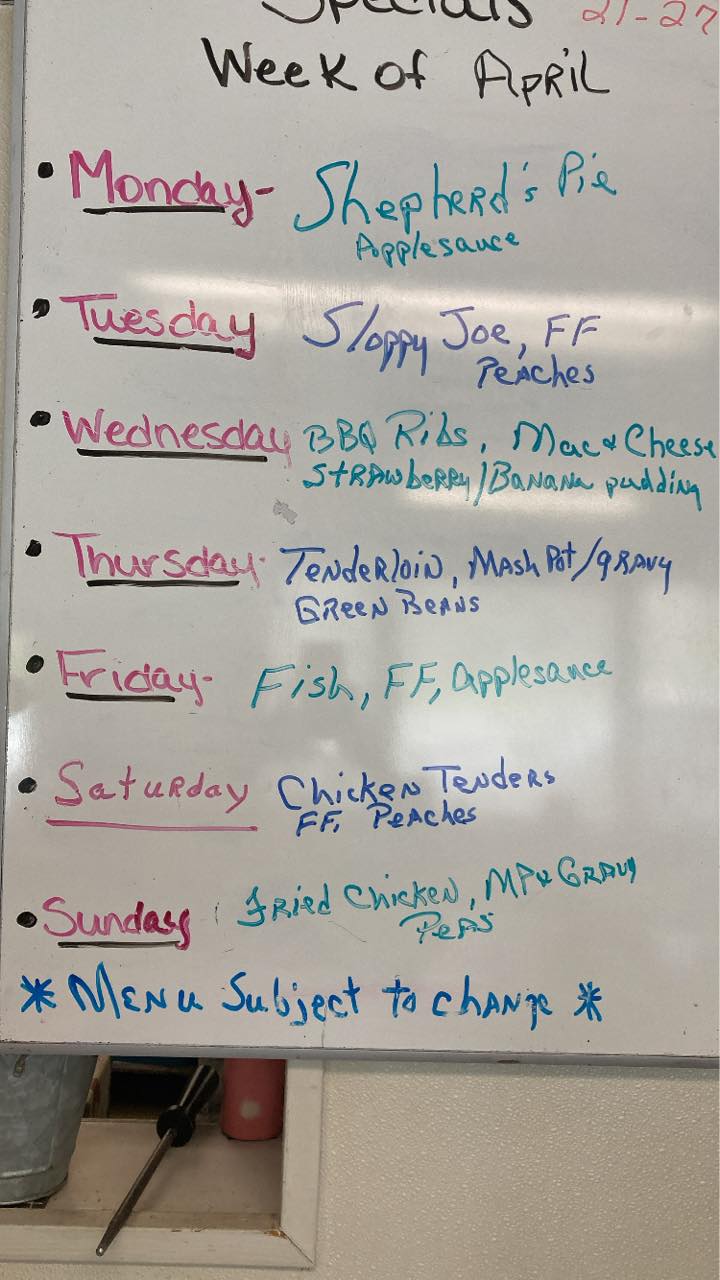 Specials 21-27
Week of April
• Monday- Shepherd's Pie
Applesauce
• Tuesday Sloppy Joe, FF
Peaches
• Wednesday BBQ Ribs, Mac & Cheese
Strawberry/Banana pudding
• Thursday- Tenderloin, Mash Pot/gravy
Green Beans
• Friday- Fish, FF, applesauce
• Saturday Chicken Tenders
FF, Peaches
• Sunday Fried Chicken, MP & Gravy
Peas
* Menu Subject to change *